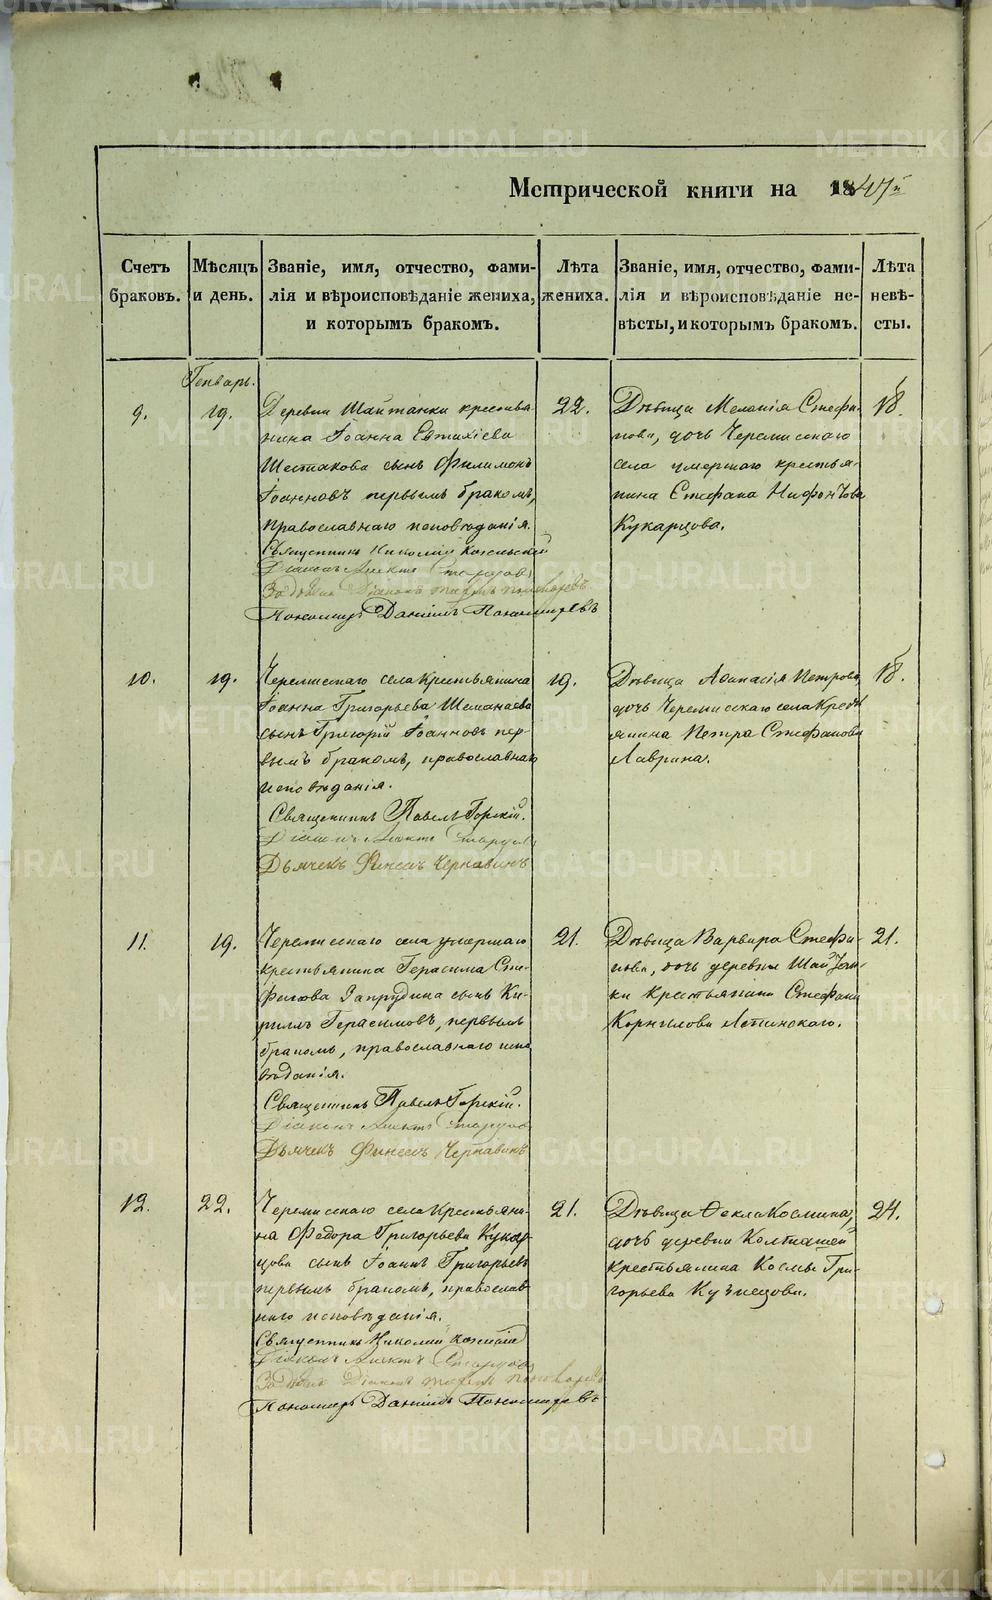 METRIKI.GASO-URAL.RU
Метрической книги на 1847й
Счетъ браковъ.
Мѣсяцъ и день.
Званіе, имя, отчество, фами-
лія и вѣроисповѣданіе жениха,
и которымъ бракомъ.
Лѣта жениха.
Званіе, имя, отчество, фами-
лія и вѣроисповѣданіе не-
вѣсты, и которымъ бракомъ.
Лѣта невѣ-
сты.
Генварь.
9.
19.
Деревни Шайтанки крестья
нина Іоанна Евтихіева
Шестакова сынъ Филимонъ
Іоанновъ первымъ бракомъ,
православнаго исповѣданія.
Священникъ Николай
Діаконъ
Діаконъ
Пономарь Даніилъ Пономаревъ
22.
Дѣвица Меланія Стефа-
нова, дочь Черемисскаго
села умершаго крестья-
нина Стефана Нифонтова
Кукарцова.
18.
10.
19.
Черемисскаго села Крестьянина
Іоанна Григорьева Шеманаева
сынъ Григорій Іоанновъ пер-
вымъ бракомъ, православнаго
исповѣданія.
Священникъ Павелъ Горскій.
Діаконъ
Дьячекъ Финеесъ Чернавинъ
19.
Дѣвица Афанасія Петрова,
дочь Черемисскаго села Кресть
янина Петра Стефанова
Лаврина.
18.
11.
19.
Черемисскаго села умершаго
крестьянина Герасима Сте-
фанова Запрудина сынъ Ки-
риллъ Герасимовъ, первымъ
бракомъ, православнаго испо
вѣданія.
Священникъ Павелъ Горскій.
Діаконъ
Дьячекъ Финеесъ Чернавинъ
21.
Дѣвица Варвара Стефа-
нова, дочь деревни Шайтан-
ки крестьянина Стефана
Корнилова
21.
12.
22.
Черемисскаго села Крестьяни-
на Федора Григорьева Кукар-
цова сынъ Іоаннъ Григорьевъ
первымъ бракомъ, православ-
наго исповѣданія.
Священникъ Николай
Діаконъ
Діаконъ
Пономарь Даніилъ Пономаревъ
21.
Дѣвица Ѳекла Космина,
дочь деревни Колташей
крестьянина Космы Гри-
горьева Кузнецова.
24.